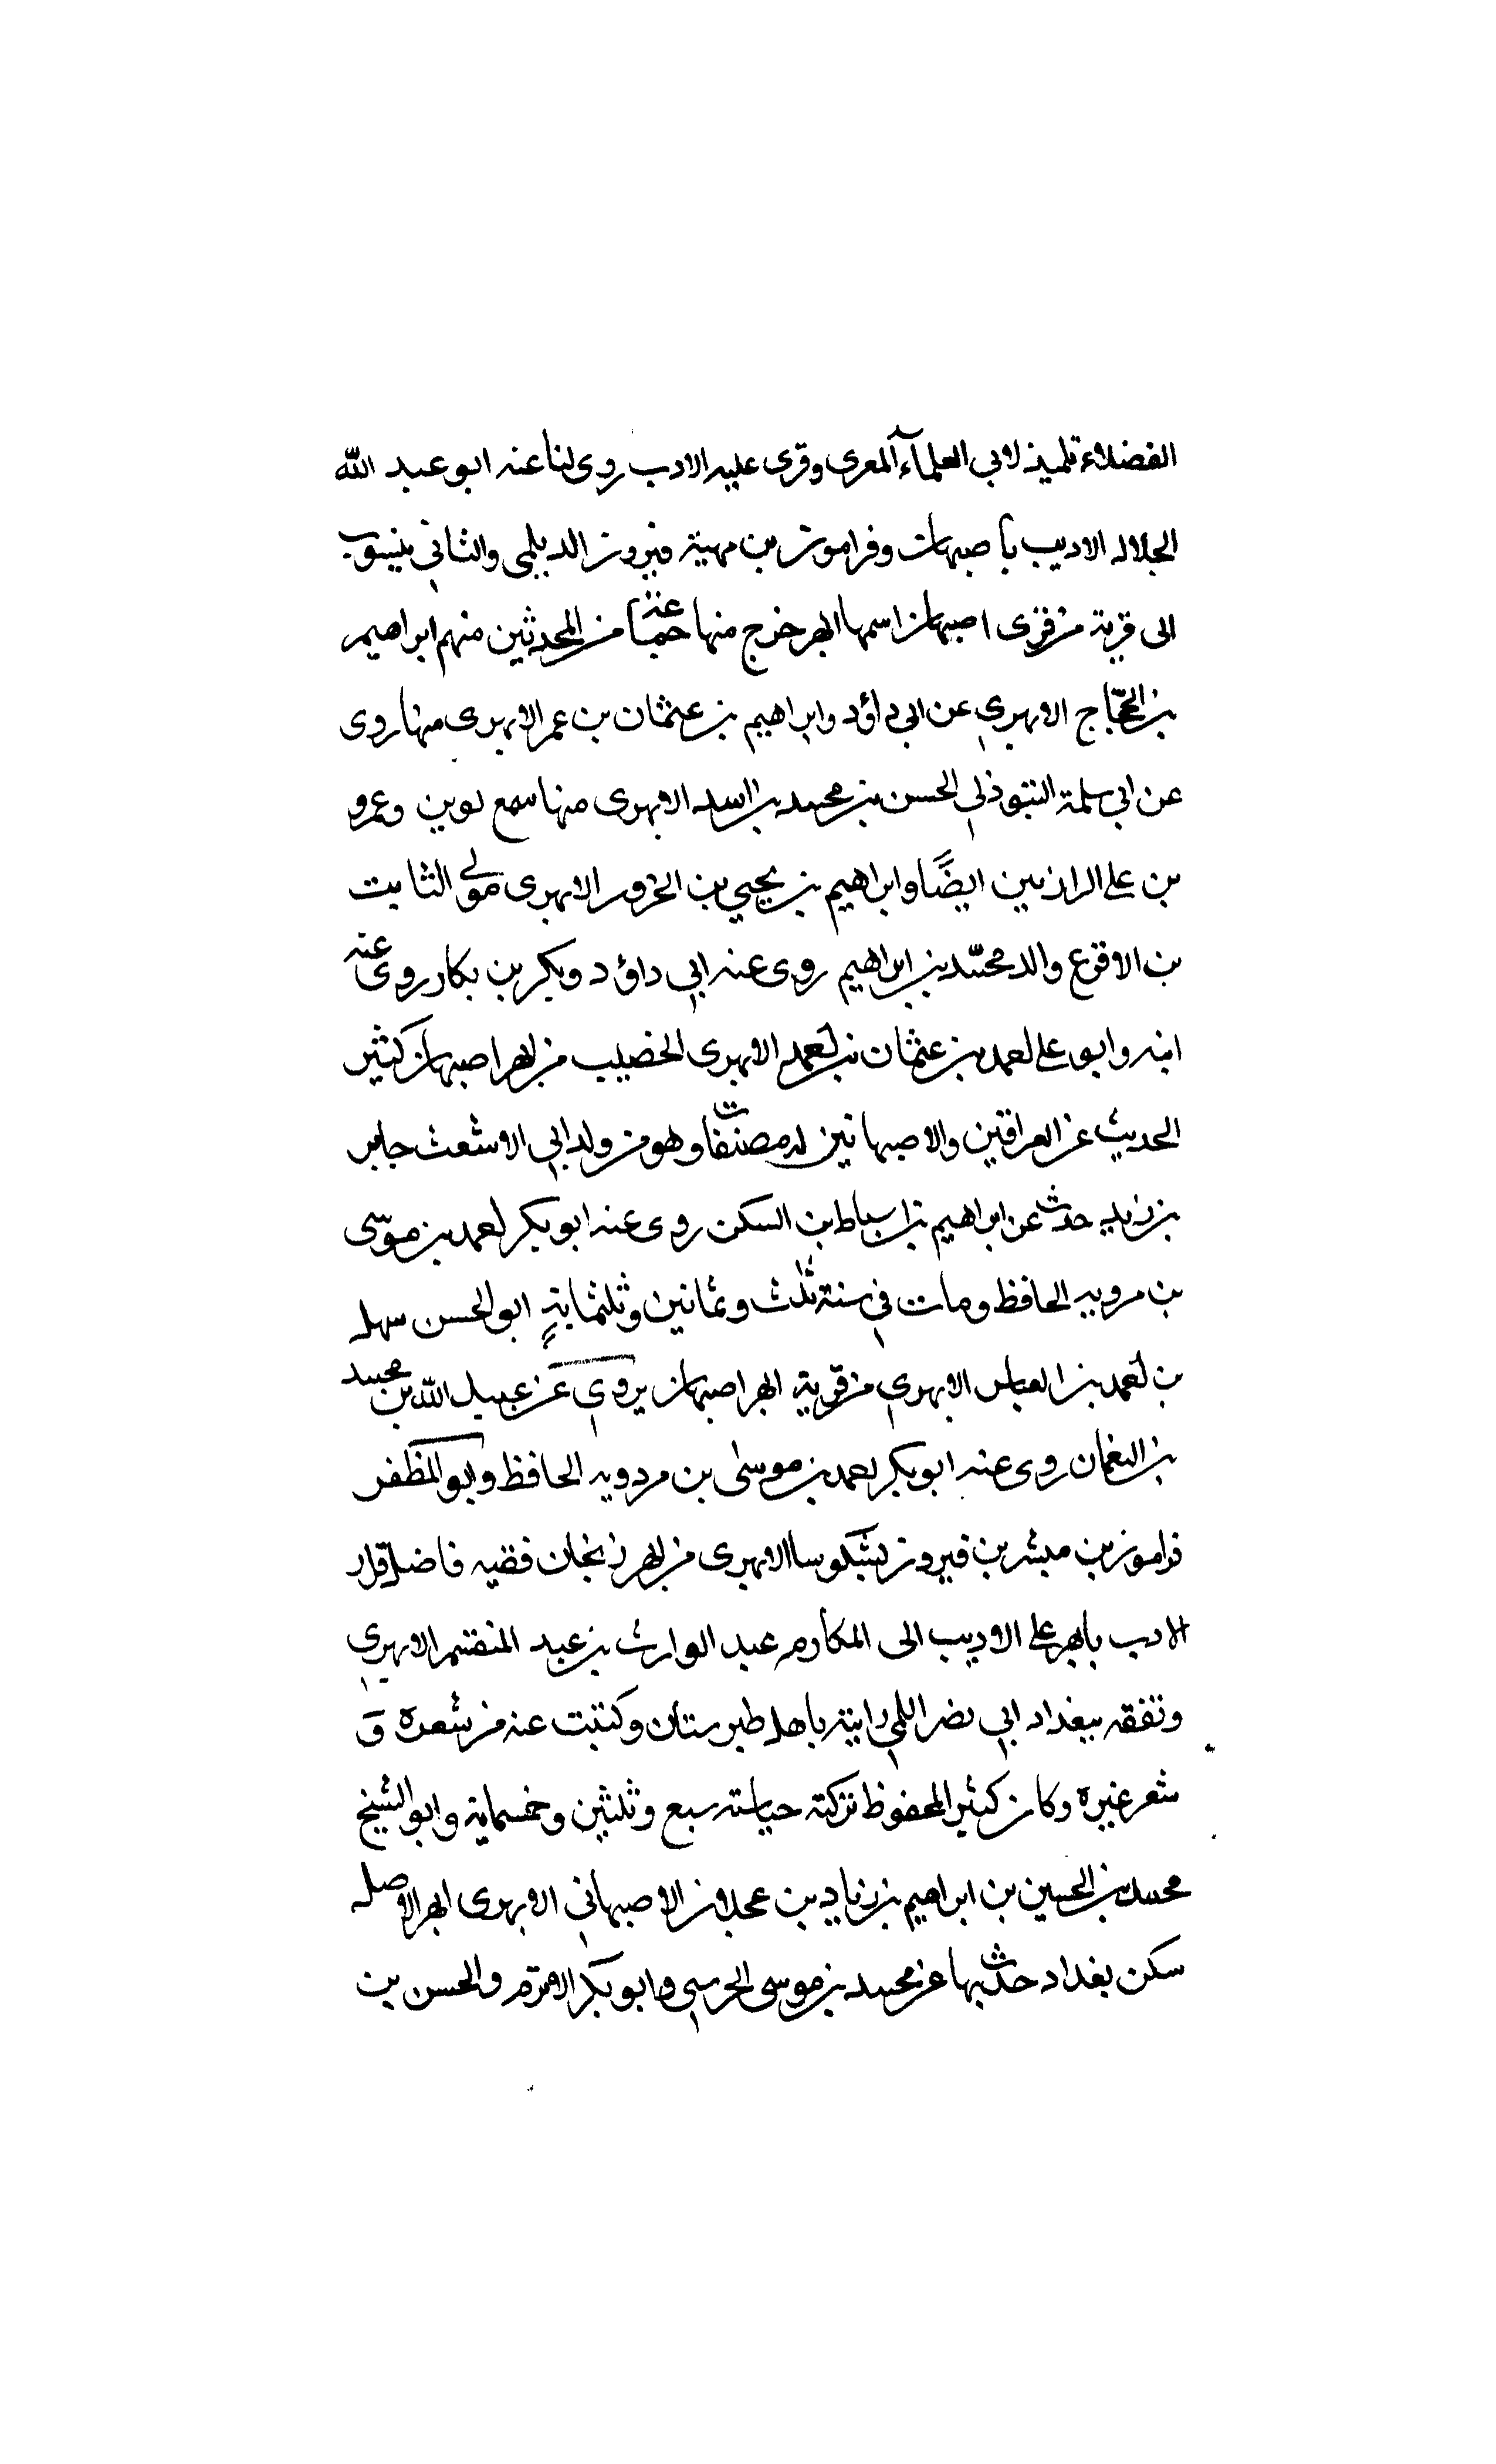 الفضلاء تلميذ لابي العلمآء المعرى وقرى عليه الادب روى لنا عنه ابو عبد الله
الجلال الاديب باصبهان وفراموز بن مهينة فيروز الديلمى والثاني ينسوب
الى قرية من قرى اصبهان اسمها ابهر خرج منها جماعة من المحدثين منهم ابراهيم
بن الحجّاج الابهري عن ابي داؤد وابراهيم بن عثمان بن عمر الابهرى منها روى
عن ابي سلمة التبوذلي الحسن بن محمد بن اسد الابهرى منها سمع لوين وعمرو
بن على الرازيين ايضًا وابراهيم بن يحيي بن الخزور الابهرى مولى الثابت
بن الاقرع والد محمّد بن ابراهيم روى عنه ابي داؤد وبكر بن بكار روى عنه
ابنه وابو على احمد بن عثمان بن احمد الابهرى الخضيب من ابهر اصبهان كثير
الحديث عن العراقين والاصبهانين له مصنفات وهو من ولد ابي الاشعث جابر
بن زايد حدث عن ابراهيم بن اسباط بن السكن روى عنه ابو بكر احمد بن موسى
بن مرويه الحافظ ومات في سنة ثلث وثمانين وثلثماية ابو الحسن سهل
بن احمد بن العباس الابهري من قرية ابهر اصبهان يروي عن عبيد الله بن محمد
بن النعمان روى عنه ابو بكر احمد بن موسى بن مردويه الحافظ وابو المظفر
فراموز بن مبشر بن فيروز الابهرى من ابهر زنجان فقيه فاضل قرا
الادب بابهر على الاديب الى المكارم عبد الوارث بن عبد المنقتم الابهري
وتفقه ببغداد ابي نضر راينه باهل طبرستان وكتبت عنه من شعره و
شعر غيره وكان كثير المحفوظ تركته حيا سنة سبع وثلثين وخمسماية وابو الشيخ
محمد بن الحسين بن ابراهيم بن زياد بن عجلان الاصبهاني الابهرى ابهر الاصل
سكن بغداد حدث بها عن محمد بن موسى الحرسي وابو بكر الاثرم والحسن بن